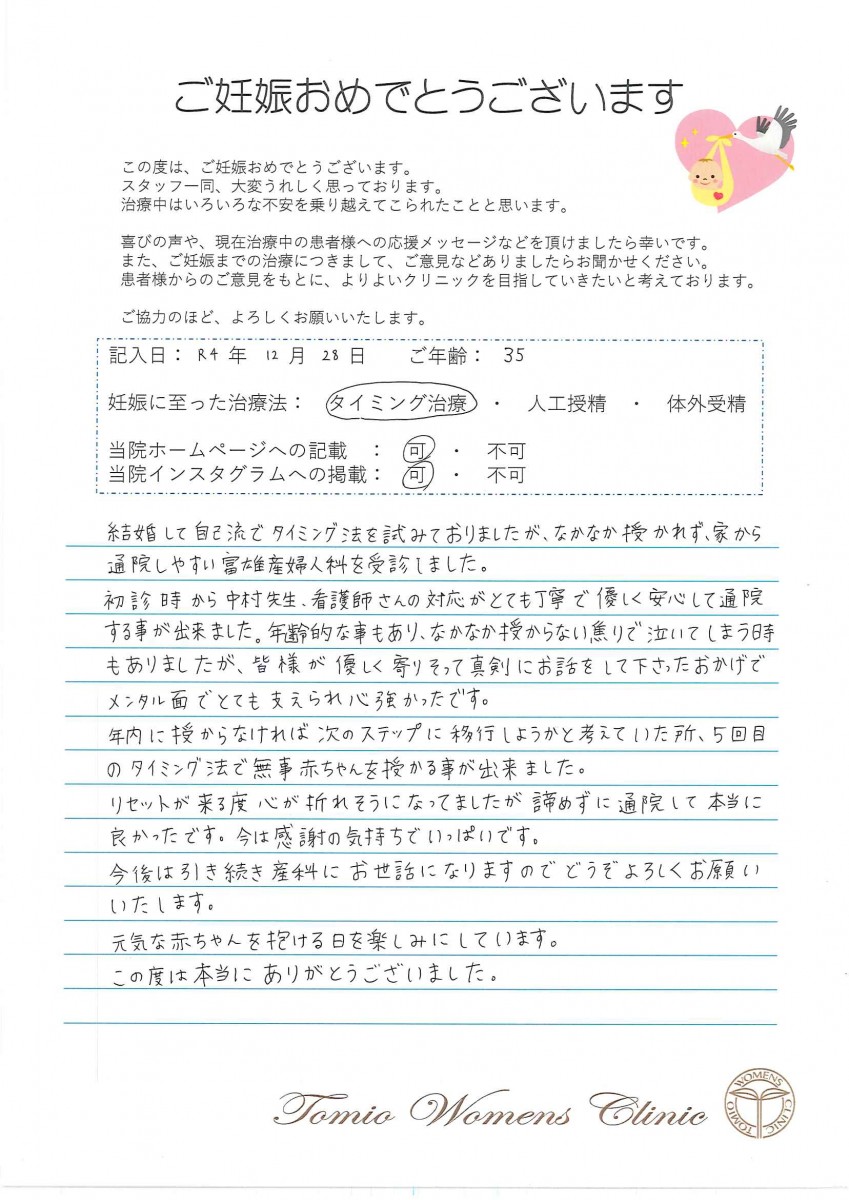 ご妊娠おめでとうございます
この度は、ご妊娠おめでとうございます。
スタッフ一同、大変うれしく思っております。
治療中はいろいろな不安を乗り越えてこられたことと思います。
喜びの声や、現在治療中の患者様への応援メッセージなどを頂けましたら幸いです。
また、ご妊娠までの治療につきまして、ご意見などありましたらお聞かせください。
患者様からのご意見をもとに、よりよいクリニックを目指していきたいと考えております。
ご協力のほど、よろしくお願いいたします。
記入日： R4 年 12 月 28 日 ご年齢： 35
妊娠に至った治療法： タイミング治療 ・ 人工授精 ・ 体外受精
当院ホームページへの記載 ： 可 ・ 不可
当院インスタグラムへの掲載： 可 ・ 不可
結婚して自己流でタイミング法を試みておりましたが、なかなか授かれず、家から
通院しやすい富雄産婦人科を受診しました。
初診時から中村先生、看護師さんの対応がとても丁寧で優しく安心して通院
する事が出来ました。年齢的な事もあり、なかなか授からない焦りで泣いてしまう時
もありましたが、皆様が優しく寄りそって真剣にお話をして下さったおかげで
メンタル面でとても支えられ心強かったです。
年内に授からなければ次のステップに移行しようかと考えていた所、5回目
のタイミング法で無事赤ちゃんを授かる事が出来ました。
リセットが来る度心が折れそうになってましたが諦めずに通院して本当に
良かったです。今は感謝の気持ちでいっぱいです。
今後は引き続き産科にお世話になりますのでどうぞよろしくお願い
いたします。
元気な赤ちゃんを抱ける日を楽しみにしています。
この度は本当にありがとうございました。
Tomio Womens Clinic
TOMIO WOMENS CLINIC